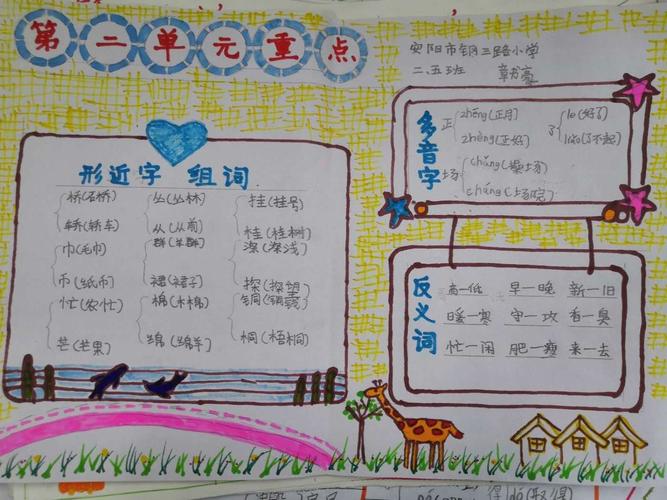 第二单元重点
安阳市钢三路小学
二.五班 章书豪
形近字 组词
桥(石桥) 丛(丛林) 挂(挂号)
轿(轿车) 从(从前) 桂(桂树)
巾(毛巾) 群(羊群) 深(深浅)
币(纸币) 裙(裙子) 探(探望)
忙(农忙) 棉(木棉) 铜(铜钱)
芒(芒果) 绵(绵羊) 桐(梧桐)
多音字
正 zhēng(正月) 了 le(好了)
zhèng(正好) liǎo(了不起)
场 chǎng(操场)
cháng(场院)
反义词
高—低 早—晚 新—旧
暖—寒 守—攻 香—臭
忙—闲 肥—瘦 来—去